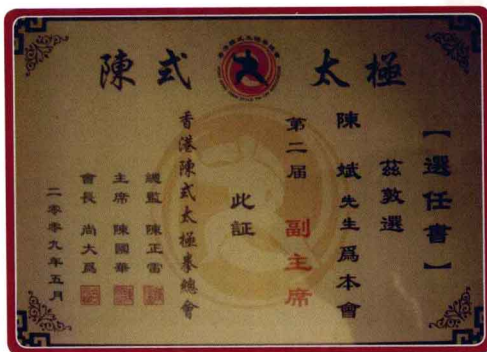 陳式太極
【選任書】
茲敦選
陳斌先生爲本會
第二届 副主席
此証
香港陳式太極拳總會
總監 陳正雷
主席 陳國華
會長 尚大爲
二零零九年五月